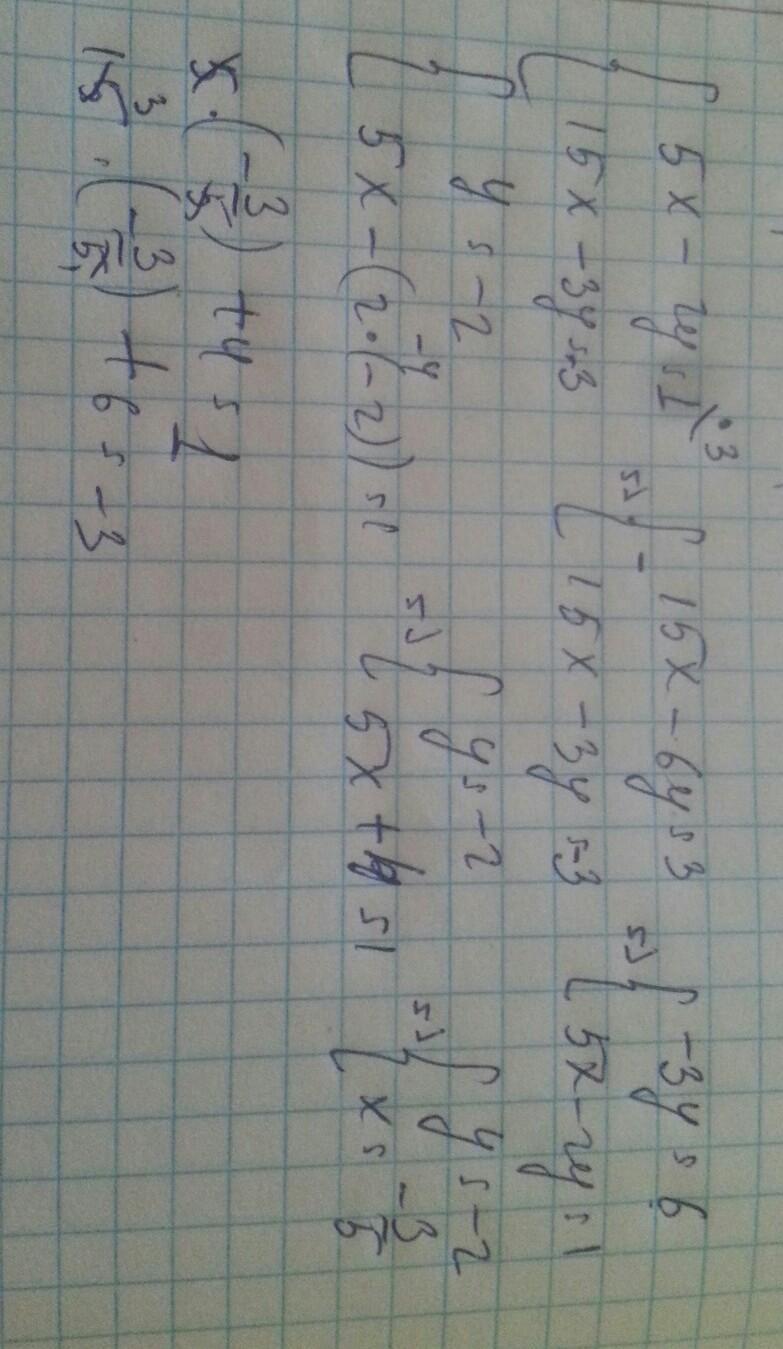 { 5x - 2y = 1 |·3
{ 15x - 3y = -3
=> { 15x - 6y = 3
- { 15x - 3y = -3
=> { -3y = 6
{ 5x - 2y = 1
{ y = -2
{ 5x - (2·(-2)) = 1
-4
=> { y = -2
{ 5x + 4 = 1
=> { y = -2
{ x = -3/5
5·(-3/5) + 4 = 1
15·(-3/5) + 6 = -3
3 1